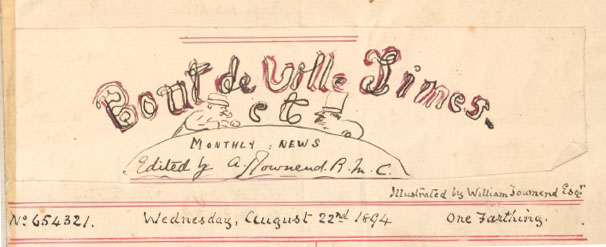 Bout de Ville Times.
etc
MONTHLY : NEWS
Edited by A. Townend. R. M. C.
Illustrated by William Townend Esqr
No 654321. Wednesday, August 22nd 1894 One Farthing.